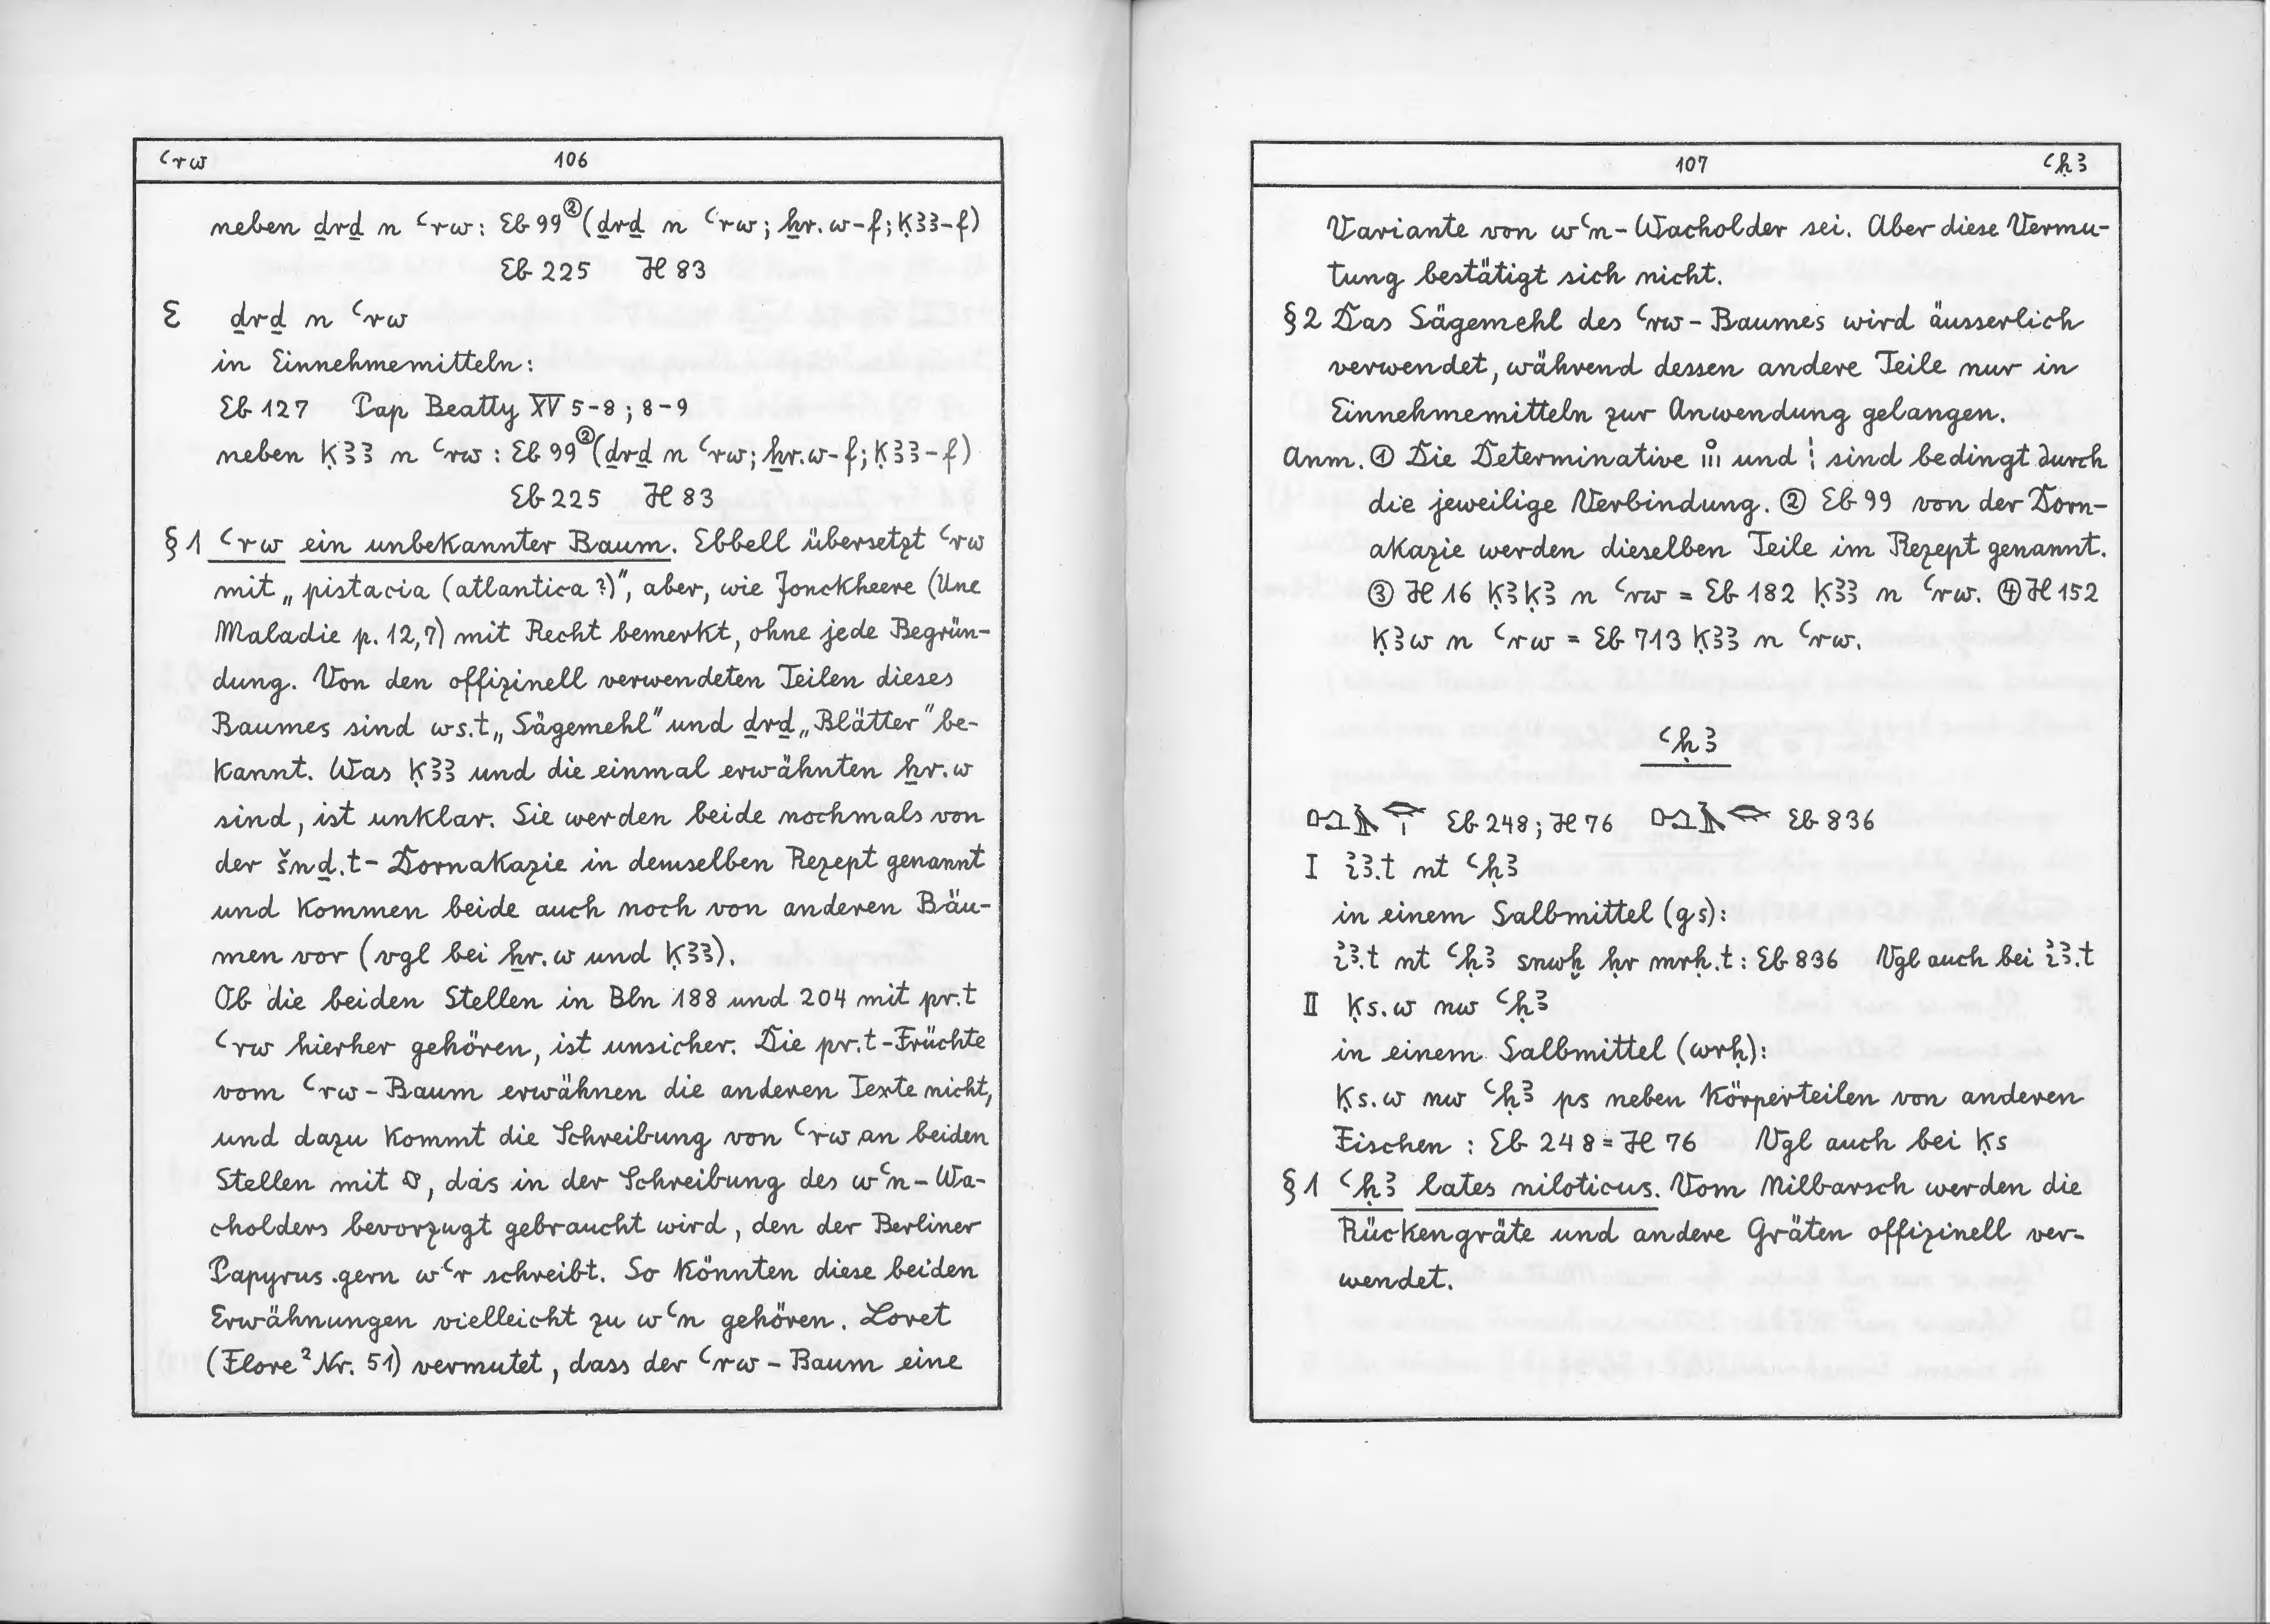 ꜥrw 106
neben ḏrḏ n ꜥrw: Eb 99② (ḏrḏ n ꜥrw; ẖr.w-f; ḳꜣꜣ-f)
Eb 225 H 83
E ḏrḏ n ꜥrw
in Einnehmemitteln:
Eb 127 Pap Beatty XV 5-8; 8-9
neben ḳꜣꜣ n ꜥrw: Eb 99② (ḏrḏ n ꜥrw; ẖr.w-f; ḳꜣꜣ-f)
Eb 225 H 83
§1 ꜥrw ein unbekannter Baum. Ebbell übersetzt ꜥrw
mit „pistacia (atlantica?)", aber, wie Jonckheere (Une
Maladie p. 12,7) mit Recht bemerkt, ohne jede Begrün-
dung. Von den offizinell verwendeten Teilen dieses
Baumes sind ws.t „Sägemehl" und ḏrḏ „Blätter" be-
kannt. Was ḳꜣꜣ und die einmal erwähnten ẖr.w
sind, ist unklar. Sie werden beide nochmals von
der šnḏ.t-Dornakazie in demselben Rezept genannt
und kommen beide auch noch von anderen Bäu-
men vor (vgl bei ẖr.w und ḳꜣꜣ).
Ob die beiden Stellen in Bln 188 und 204 mit pr.t
ꜥrw hierher gehören, ist unsicher. Die pr.t-Früchte
vom ꜥrw-Baum erwähnen die anderen Texte nicht,
und dazu kommt die Schreibung von ꜥrw an beiden
Stellen mit , das in der Schreibung des wꜥn-Wa-
cholders bevorzugt gebraucht wird, den der Berliner
Papyrus gern wꜥr schreibt. So könnten diese beiden
Erwähnungen vielleicht zu wꜥn gehören. Loret
(Flore² Nr. 51) vermutet, dass der ꜥrw-Baum eine
107 ꜥḥꜣ
Variante von wꜥn-Wacholder sei. Aber diese Vermu-
tung bestätigt sich nicht.
§2 Das Sägemehl des ꜥrw-Baumes wird äusserlich
verwendet, während dessen andere Teile nur in
Einnehmemitteln zur Anwendung gelangen.
Anm. ① Die Determinative und sind bedingt durch
die jeweilige Verbindung. ② Eb 99 von der Dorn-
akazie werden dieselben Teile im Rezept genannt.
③ H 16 ḳꜣḳꜣ n ꜥrw = Eb 182 ḳꜣꜣ n ꜥrw. ④ H 152
ḳꜣw n ꜥrw = Eb 713 ḳꜣꜣ n ꜥrw.
ꜥḥꜣ
Eb 248; H 76 Eb 836
I iꜣꜣ.t nt ꜥḥꜣ
in einem Salbmittel (gs):
iꜣꜣ.t nt ꜥḥꜣ snwḫ ḥr mrḥ.t: Eb 836 Vgl auch bei iꜣꜣ.t
II ḳs.w nw ꜥḥꜣ
in einem Salbmittel (wrḥ):
ḳs.w nw ꜥḥꜣ ps neben Körperteilen von anderen
Fischen: Eb 248 = H 76 Vgl auch bei ḳs
§1 ꜥḥꜣ lates niloticus. Vom Nilbarsch werden die
Rückengräte und andere Gräten offizinell ver-
wendet.